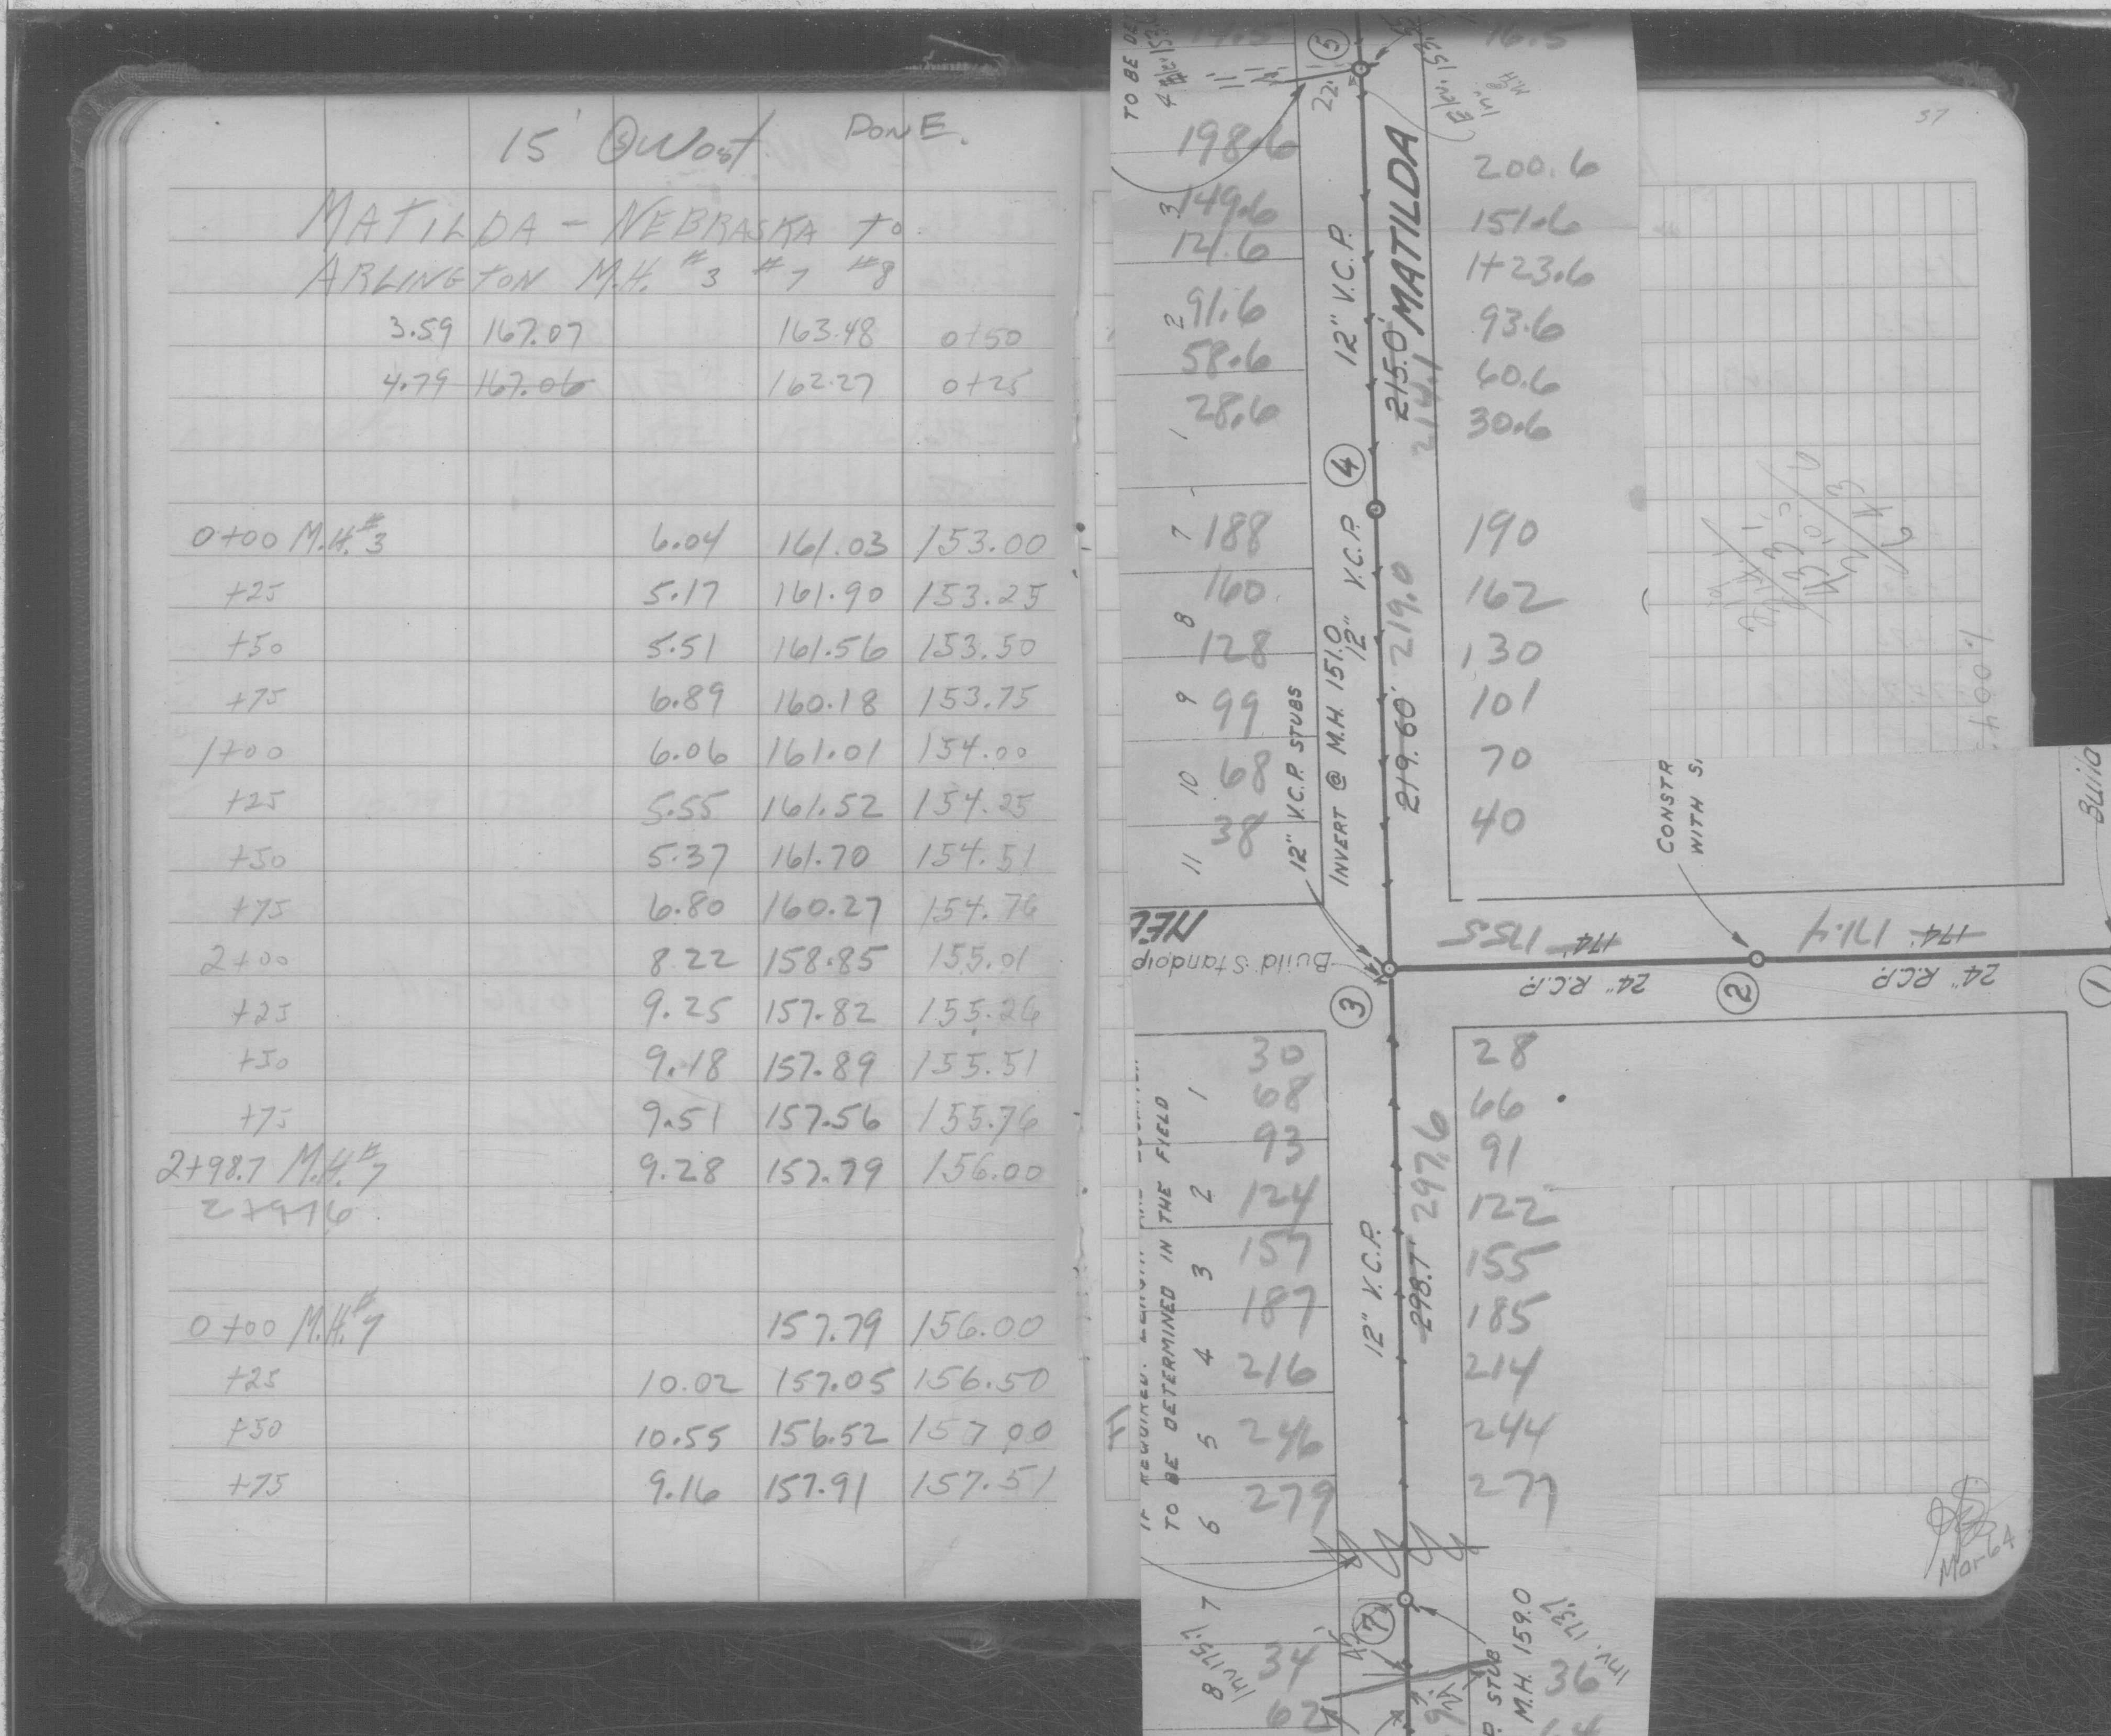 15' West DONE.
MATILDA - NEBRASKA to
ARLINGTON M.H. #3 #7 #8
3.59 167.07 163.48 0+50
4.79 167.06 162.27 0+25
0+00 M.H.#3 6.04 161.03 153.00
+25 5.17 161.90 153.25
+50 5.51 161.56 153.50
+75 6.89 160.18 153.75
1+00 6.06 161.01 154.00
+25 5.55 161.52 154.25
+50 5.37 161.70 154.51
+75 6.80 160.27 154.76
2+00 8.22 158.85 155.01
+25 9.25 157.82 155.26
+50 9.18 157.89 155.51
+75 9.51 157.56 155.76
2+98.7 M.H.#7 9.28 157.79 156.00
2+97.6
0+00 M.H.#7 157.79 156.00
+25 10.02 157.05 156.50
+50 10.55 156.52 157.00
+75 9.16 157.91 157.51
37
TO BE
5
22'
198.6
149.6
121.6
91.6
58.6
28.6
3
2
1
12" V.C.P.
MATILDA
215.0'
214.1
16.5
200.6
151.6
1+23.6
93.6
60.6
30.6
4
7 188
160
8
128
9 99
10 68
11 38
12" V.C.P. STUBS
INVERT @ M.H. 151.0
12" V.C.P.
219.60' 219.0
190
162
130
101
70
40
CONSTR
WITH S.
Build
Build Standpip
3
174' 175.5
24" R.C.P.
2
174' 171.4
24" R.C.P.
1
30
68
93
124
157
187
216
246
279
1
2
3
4
5
6
TO BE DETERMINED IN THE FIELD
12" V.C.P.
298.7' 297.6
28
66
91
122
155
185
214
244
277
7
7
8
Inv 175.7
34
62
STUB
M.H. 159.0
Inv. 173.7
36
Mar 64